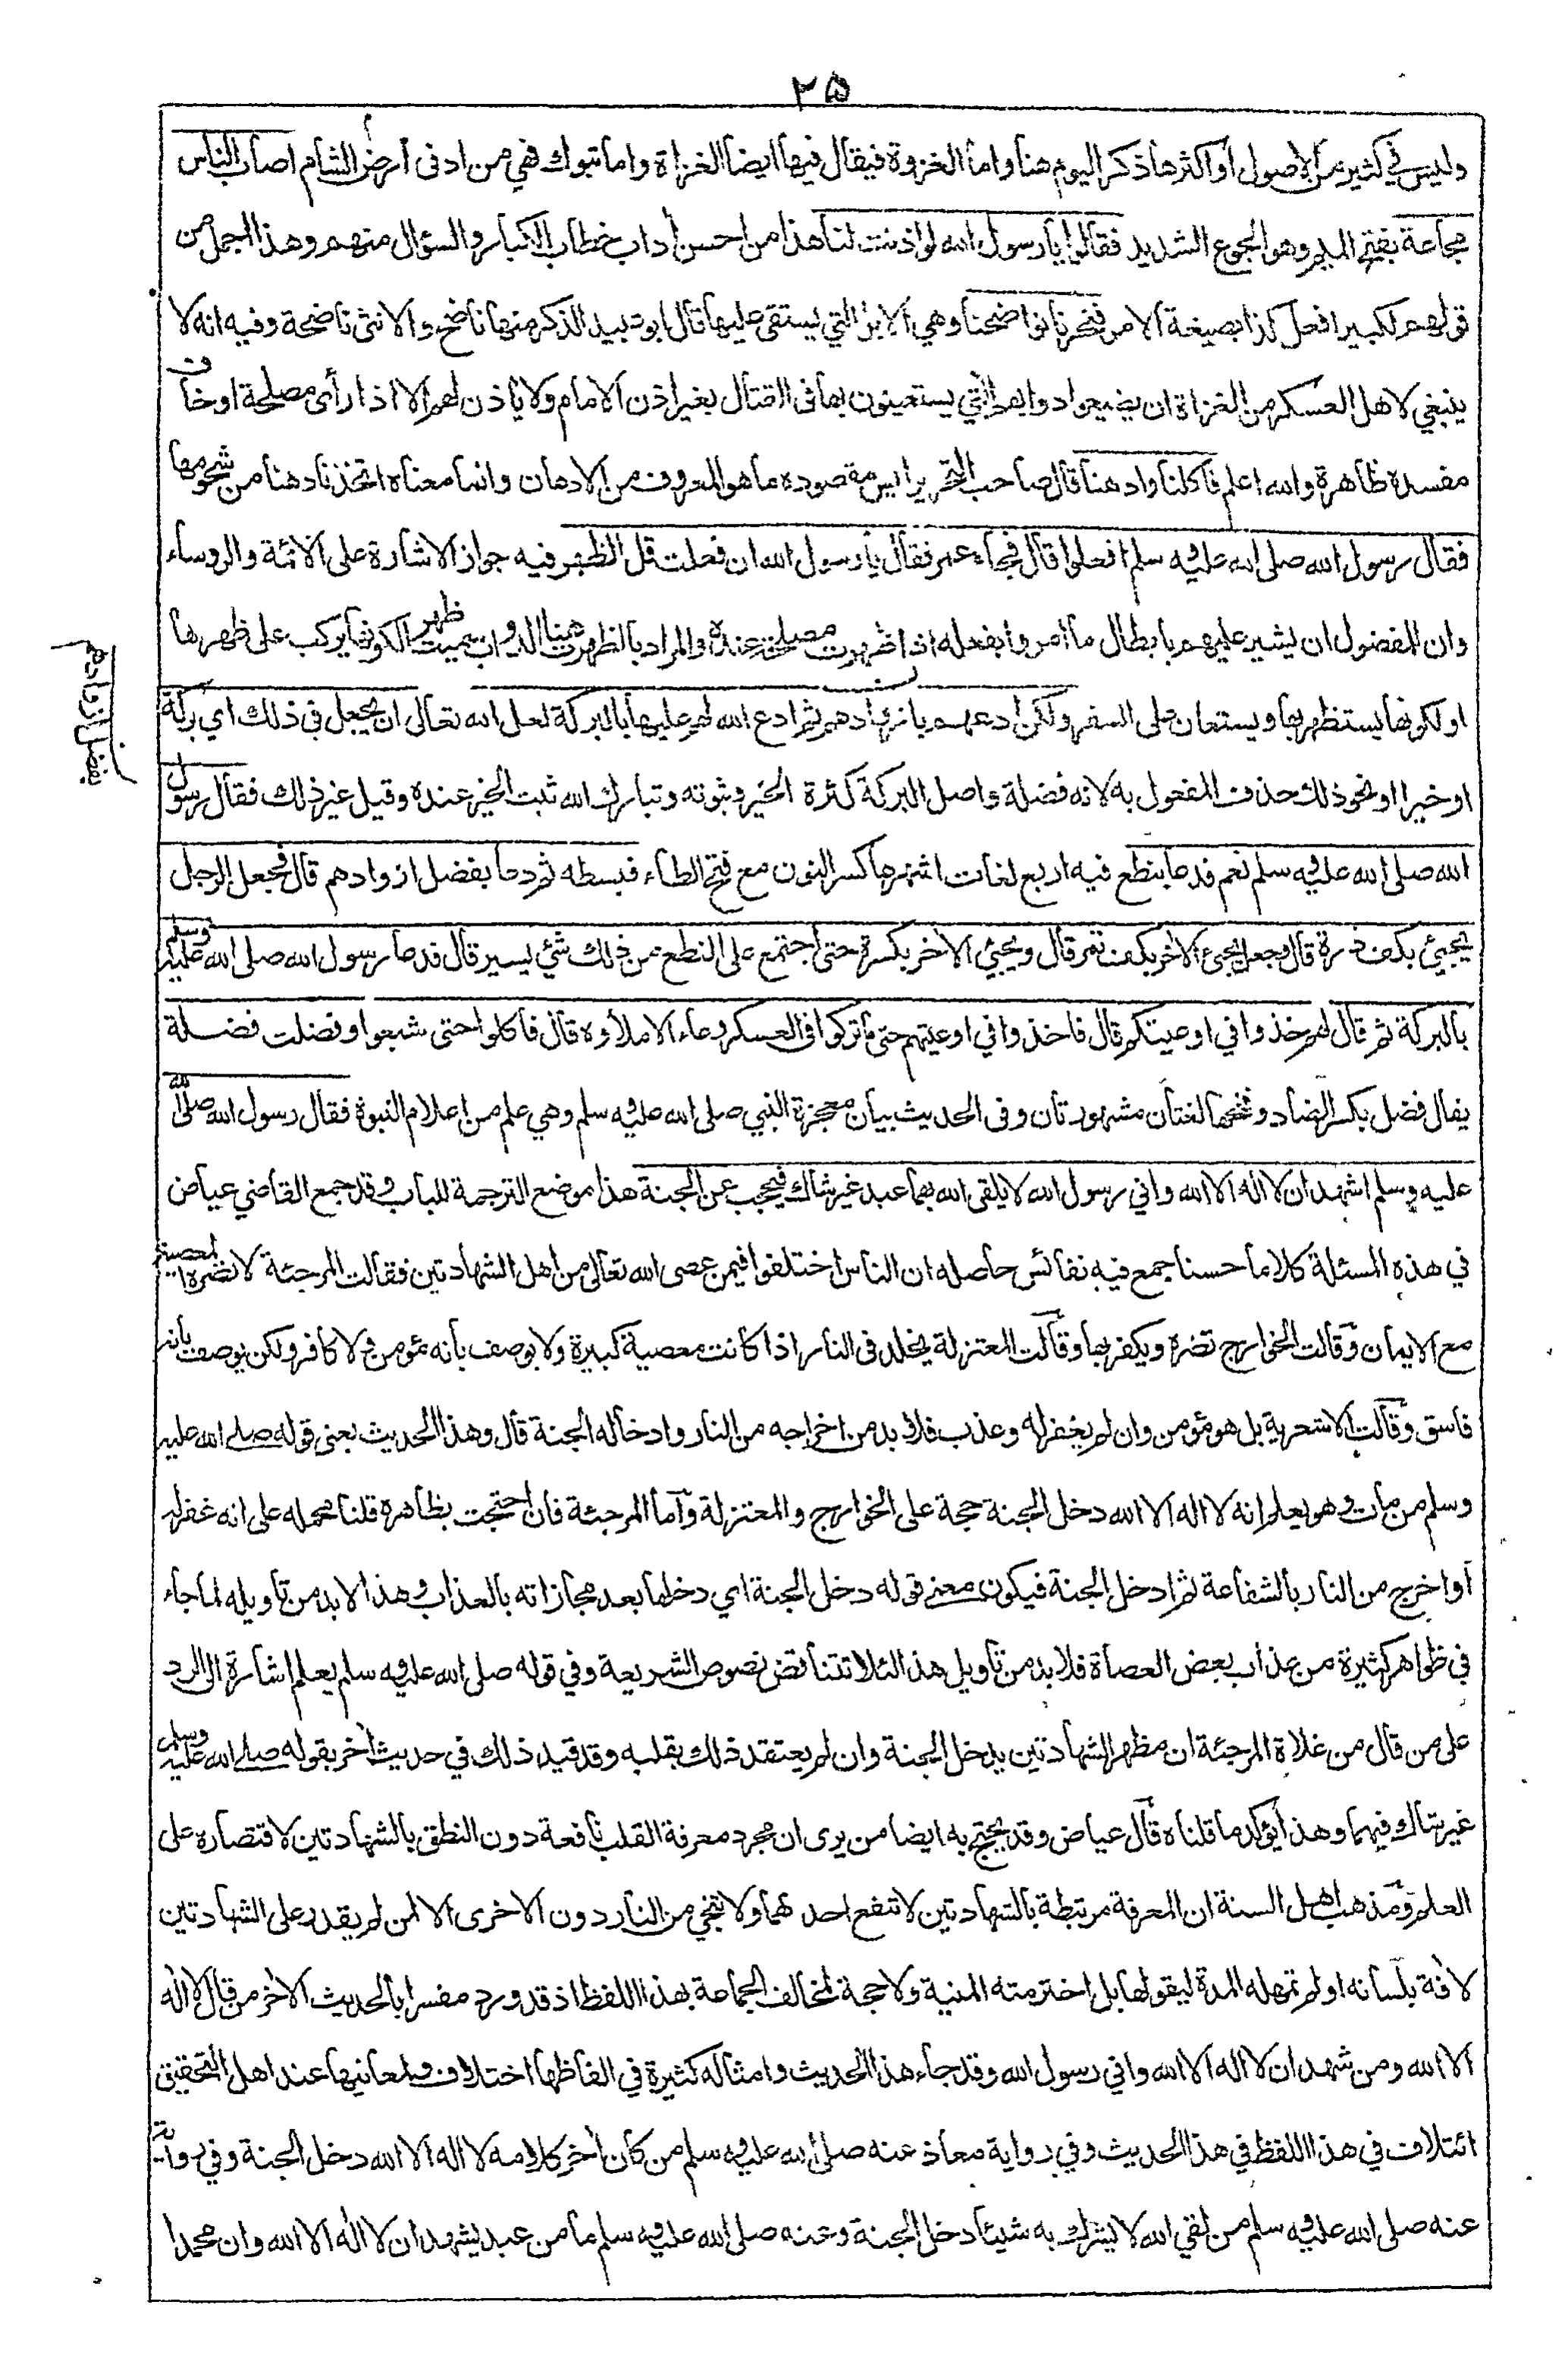 ٢٥
وليس في كثير من الاصول أو اكثرها ذكر اليوم هنا واما الغزوة فيقال فيها ايضا الغزاة واما تبوك فهي من ادنى أرض الشام اصاب الناس
مجاعة بفتح الميم وهو الجوع الشديد فقالوا يا رسول الله لو اذنت لنا هذا من احسن أداب خطاب الكبار والسؤال منهم وهذا اجمل من
قولهم لكبير افعل كذا بصيغة الامر فنحرنا نواضحنا وهي الابل التي يستقى عليها قال ابو عبيد الذكر منها ناضح والانثى ناضحة وفيه انه لا
ينبغي لاهل العسكر من الغزاة ان يضيعوا دوابهم التي يستعينون بها في القتال بغير اذن الامام ولا يأذن لهم الا اذا رأى مصلحة او خاف
مفسدة ظاهرة والله اعلم فاكلنا وادهنا قال صاحب التحرير ليس مقصوده ما هو المعروف من الادهان وانما معناه اتخذنا دهنا من شحومها
فقال رسول الله صلى الله عليه وسلم افعلوا قال فجاء عمر فقال يا رسول الله ان فعلت قل الظهر فيه جواز الاشارة على الائمة والروساء
وان للمفضول ان يشير عليهم بابطال ما امروا بفعله اذا ظهرت مصلحة عنده والمراد بالظهر هنا الدواب سميت ظهرا لكونها يركب على ظهرها
او لكونها يستظهر بها ويستعان على السفر ولكن ادعهم بازوادهم ثم ادع الله لهم عليها بالبركة لعل الله تعالى ان يجعل في ذلك اي بركة
بفضل ازوادهم
او خيرا او نحو ذلك حذف المفعول به لانه فضلة واصل البركة كثرة الخير وثبوته وتبارك الله ثبت الخير عنده وقيل غير ذلك فقال رسول
الله صلى الله عليه وسلم نعم فدعا بنطع فيه اربع لغات اشهرها كسر النون مع فتح الطاء فبسطه ثم دعا بفضل ازوادهم قال فجعل الرجل
يجيئ بكف ذرة قال وجعل يجيئ الأخر بكف تمر قال ويجيئ الأخر بكسرة حتى اجتمع على النطع من ذلك شئ يسير قال فدعا رسول الله صلى الله عليه وسلم
بالبركة ثم قال لهم خذوا في اوعيتكم قال فاخذوا في اوعيتهم حتى ما تركوا في العسكر وعاء الا ملأوه قال فاكلوا حتى شبعوا وفضلت فضلة
يقال فضل بكسر الضاد وفتحها لغتان مشهورتان وفي الحديث بيان معجزة النبي صلى الله عليه وسلم وهي علم من اعلام النبوة فقال رسول الله صلى الله
عليه وسلم اشهد ان لا اله الا الله واني رسول الله لا يلقى الله بهما عبد غير شاك فيحجب عن الجنة هذا موضع الترجمة للباب وقد جمع القاضي عياض
في هذه المسئلة كلاما حسنا جمع فيه نفائس حاصله ان الناس اختلفوا فيمن عصى الله تعالى من اهل الشهادتين فقالت المرجئة لا تضره المعصية
مع الايمان وقالت الخوارج تضره ويكفر بها وقالت المعتزلة يخلد في النار اذا كانت معصية كبيرة ولا يوصف بأنه مؤمن ولا كافر ولكن يوصف بانه
فاسق وقالت الاشعرية بل هو مؤمن وان لم يغفر له وعذب فلا بد من اخراجه من النار وادخاله الجنة قال وهذا الحديث يعني قوله صلى الله عليه
وسلم من مات وهو يعلم انه لا اله الا الله دخل الجنة حجة على الخوارج والمعتزلة وأما المرجئة فان احتجت بظاهره قلنا محمله على انه غفر له
أو اخرج من النار بالشفاعة ثم ادخل الجنة فيكون معنى قوله دخل الجنة اي دخلها بعد مجازاته بالعذاب وهذا لا بد من تاويله لما جاء
في ظواهر كثيرة من عذاب بعض العصاة فلا بد من تأويل هذا لئلا تتناقض نصوص الشريعة وفي قوله صلى الله عليه وسلم يعلم اشارة الى الرد
على من قال من غلاة المرجئة ان مظهر الشهادتين يدخل الجنة وان لم يعتقد ذلك بقلبه وقد قيد ذلك في حديث أخر بقوله صلى الله عليه وسلم
غير شاك فيهما وهذا يؤكد ما قلناه قال عياض وقد يحتج به ايضا من يرى ان مجرد معرفة القلب نافعة دون النطق بالشهادتين لاقتصاره على
العلم ومذهب اهل السنة ان المعرفة مرتبطة بالشهادتين لا تنفع احدهما ولا تنجي من النار دون الاخرى الا لمن لم يقدر على الشهادتين
لأفة بلسانه او لم تمهله المدة ليقولها بل اخترمته المنية ولا حجة لمخالف الجماعة بهذا اللفظ اذ قد ورد مفسرا بالحديث الأخر من قال لا اله
الا الله ومن شهد ان لا اله الا الله واني رسول الله وقد جاء هذا الحديث وامثاله كثيرة في الفاظها اختلاف ولمعانيها عند اهل التحقيق
ائتلاف في هذا اللفظ في هذا الحديث وفي رواية معاذ عنه صلى الله عليه وسلم من كان أخر كلامه لا اله الا الله دخل الجنة وفي رواية
عنه صلى الله عليه وسلم من لقي الله لا يشرك به شيئا دخل الجنة وعنه صلى الله عليه وسلم ما من عبد يشهد ان لا اله الا الله وان محمدا